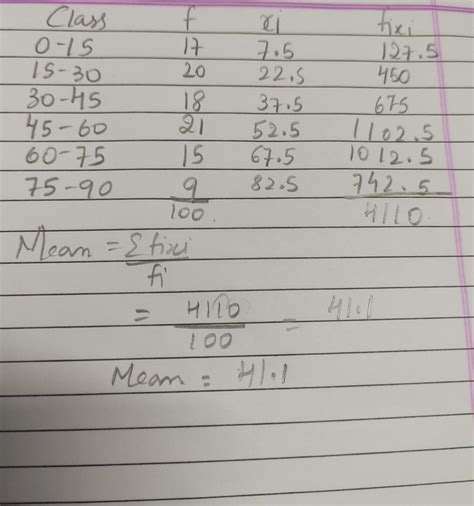 Class f xi fixi
0-15 17 7.5 127.5
15-30 20 22.5 450
30-45 18 37.5 675
45-60 21 52.5 1102.5
60-75 15 67.5 1012.5
75-90 9 82.5 742.5
100. 4110.
Mean = Σfixi
fi
= 4110 = 41.1
100
Mean = 41.1